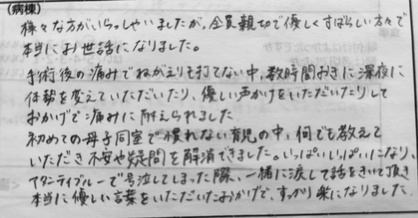 (病棟)
様々な方がいらっしゃいましたが、全員親切で優しくすばらしい方々で
本当にお世話になりました。
手術後の痛みでねがえりも打てない中、数時間おきに深夜に
体勢を変えていただいたり、優しい声かけをいただいたりして
おかげで痛みに耐えられました
初めての母子同室で慣れない育児の中、何でも教えて
いただき不安や疑問を解消できました。いっぱいいっぱいになり、
マタニティブルーで号泣してしまった際、一緒に涙して話をきいて頂き
本当に優しい言葉をいただいたおかげで、すっかり楽になりました